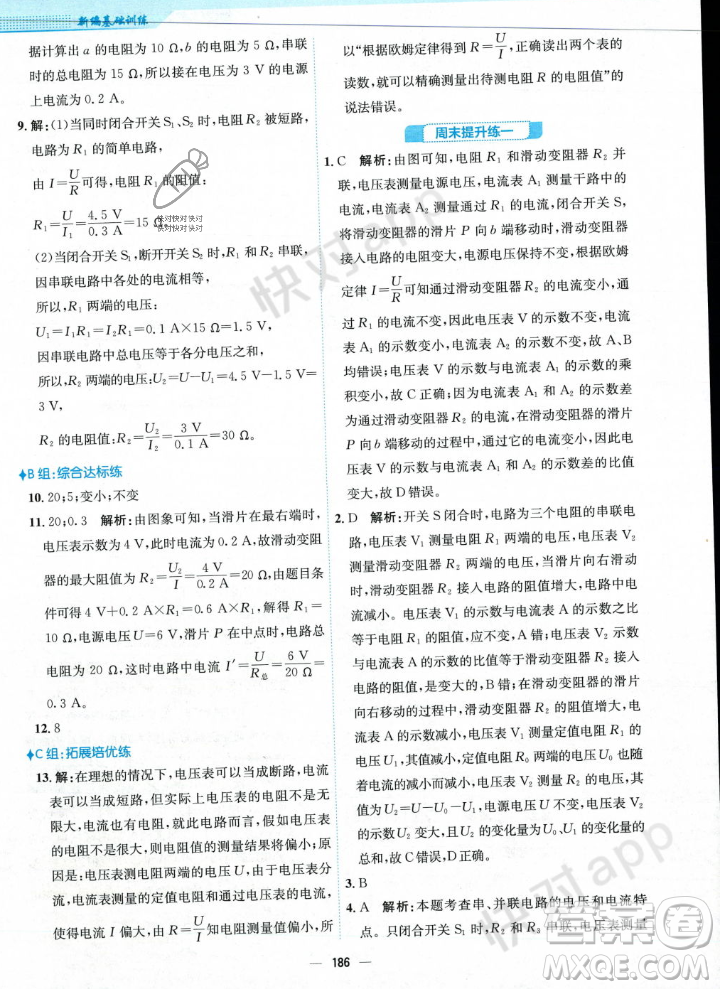 新编基础训练
据计算出 a 的电阻为 10 Ω,b 的电阻为 5 Ω,串联
时的总电阻为 15 Ω,所以接在电压为 3 V 的电源
上电流为 0.2 A。
9. 解:(1)当同时闭合开关 S₁、S₂ 时,电阻 R₂ 被短路,
电路为 R₁ 的简单电路,
由 I=U/R 可得,电阻 R₁ 的阻值:
R₁=U/I₁=4.5 V/0.3 A=15 Ω
快对快对快对
快对快对快对
(2)当闭合开关 S₁,断开开关 S₂ 时,R₁ 和 R₂ 串联,
因串联电路中各处的电流相等,
所以,R₁ 两端的电压:
U₁=I₁R₁=I R₁=0.1 A×15 Ω=1.5 V
因串联电路中总电压等于各分电压之和,
所以,R₂ 两端的电压:U₂=U-U₁=4.5 V-1.5 V=
3 V,
R₂ 的电阻值:R₂=U₂/I=3 V/0.1 A=30 Ω。
B 组:综合达标练
10. 20;5;变小;不变
11. 20;0.3 解析:由图象可知,当滑片在最右端时,
电压表示数为 4 V,此时电流为 0.2 A,故滑动变阻
器的最大阻值为 R₂=U₂/I=4 V/0.2 A=20 Ω,由题目条
件可得 4 V+0.2 A×R₁=0.6 A×R₁,解得 R₁=
10 Ω,电源电压为 U=6 V,滑片 P 在中点时,电路总
电阻为 20 Ω,这时电路中电流 I′=U/R总=6 V/20 Ω=
0.3 A。
12. 8
C 组:拓展培优练
13. 解:在理想的情况下,电压表可以当成断路,电流
表可以当成短路,但实际上电压表的电阻不是无
限大,电流表也是有电阻的。根据电路图可以看
出,电流表测量的是定值电阻和电压表的总电流,
因为电压表测量的定值电阻两端的电压 U 不变,
而电流表测量的定值电阻和电压表的总电流,所
以导致电流 I 偏大,由 R=U/I知测量阻值偏小,所
以“根据欧姆定律得到 R=U/I,正确读出两个表的
读数,就可以精确测量出待测电阻 R 的电阻值”的
说法错误。
周末提升练一
1. C 解析:由图可知,电阻 R₁ 和滑动变阻器 R₂ 并
联,电压表测量电源电压,电流表 A₁ 测量干路中的
电流,电流表 A₂ 测量 R₁ 中的电流。闭合开关 S,
将滑动变阻器的滑片 P 向 b 端移动时,滑动变阻器
接入电路的电阻变大,电源电压保持不变,根据欧姆
定律 I=U/R可知通过滑动变阻器 R₂ 的电流变小,通
过 R₁ 的电流不变,因此干路电流变小,所以电流表
A₁ 的示数变小,电流表 A₂ 的示数不变,故 A、B
均错误;电压表 V 的示数不变,与电流表 A₁ 的乘
积变小,故 C 正确;电流表 A₁ 和 A₂ 的示数差
为通过滑动变阻器 R₂ 的电流,在滑动变阻器的滑片
P 向 b 端移动的过程中,通过 R₂ 的电流变小,因此
电流表 A₁ 的示数与电流表 A₂ 的示数差也变小,
故 D 错误。
2. D 解析:开关 S 闭合时,电路为三个电阻的串联电
路,电压表 V₁ 测量电阻 R₁ 两端的电压,电压表 V₂
测量滑动变阻器 R₂ 两端的电压,当滑片向右移动
时,滑动变阻器 R₂ 接入电路的阻值增大,电路中电
流减小。电压表 V₁ 的示数与电流表 A 的示数的比
等于电阻 R₁ 的阻值,应不变,A 错;电压表 V₂ 的示
数与电流表 A 的示数的比等于滑动变阻器 R₂ 接入
电路的阻值,是变大的,B 错;在滑片向右移动过程
中,滑动变阻器 R₂ 接入电路的阻值增大,电路中电
流 I 减小,电压表 V₁ 的示数为定值电阻 R₁ 两端的
电压 U₁,其随电流的减小而减小,R₀ 两端的电压
U₀ 也随电流的减小而减小,总电压 U 不变,电压表
的示数 U₂ 变大,且 U₂ 的变化量为U₀、U₁ 的变化量
之和,故 C 错误,D 正确。
3. B
4. A 解析:本题考查串、并联电路的电压和电流特
点。只闭合开关 S₁ 时,R₁、R₂ 串联,电压表测量
186
快对app
快对app
答案圈
MXQE.COM